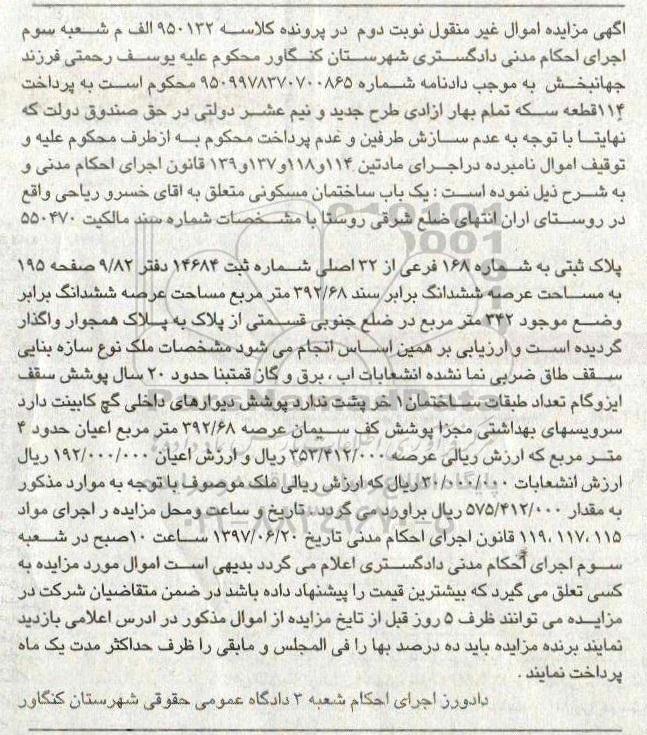 اگهی مزایده اموال غیر منقول نوبت دوم در پرونده کلاسه ۹۵۰۱۳۲ الف م شعبه سوم
اجرای احکام مدنی دادگستری شهرستان کنگاور محکوم علیه یوسف رحمتی فرزند
جهانبخش به موجب دادنامه شماره ۹۵۰۹۹۷۸۳۷۰۷۰۰۸۶۵ محکوم است به پرداخت
۱۱۴قطعه سکه تمام بهار ازادی طرح جدید و نیم عشر دولتی در حق صندوق دولت که
نهایتا با توجه به عدم سازش طرفین و عدم پرداخت محکوم به ازطرف محکوم علیه و
توقیف اموال نامبرده دراجرای مادتین ۱۱۴و۱۱۸و۱۳۷و۱۳۹ قانون اجرای احکام مدنی و
به شرح ذیل نموده است : یک باب ساختمان مسکونی متعلق به اقای خسرو ریاحی واقع
در روستای اران انتهای ضلع شرقی روستا با مشخصات شماره سند مالکیت ۵۵۰۴۷۰
پلاک ثبتی به شماره ۱۶۸ فرعی از ۳۲ اصلی شماره ثبت ۱۴۶۸۴ دفتر ۹/۸۲ صفحه ۱۹۵
به مساحت عرصه ششدانگ برابر سند ۳۹۲/۶۸ متر مربع مساحت عرصه ششدانگ برابر
وضع موجود ۳۴۲ متر مربع در ضلع جنوبی قسمتی از پلاک به پلاک همجوار واگذار
گردیده است و ارزیابی بر همین اساس انجام می شود مشخصات ملک نوع سازه بنایی
سقف طاق ضربی نما نشده انشعابات اب ، برق و گاز قمتبنا حدود ۲۰ سال پوشش سقف
ایزوگام تعداد طبقات ساختمان۱ خر پشت ندارد پوشش دیوارهای داخلی گچ کابینت دارد
سرویسهای بهداشتی مجزا پوشش کف سیمان عرصه ۳۹۲/۶۸ متر مربع اعیان حدود ۴
متر مربع که ارزش ریالی عرصه ۳۵۳/۴۱۲/۰۰۰ ریال و ارزش اعیان ۱۹۲/۰۰۰/۰۰۰ ریال
ارزش انشعابات ۳۰/۰۰۰/۰۰۰ ریال که ارزش ریالی ملک موصوف با توجه به موارد مذکور
به مقدار ۵۷۵/۴۱۲/۰۰۰ ریال براورد می گردد. تاریخ و ساعت ومحل مزایده ر اجرای مواد
۱۱۵ ،۱۱۷ ،۱۱۹ قانون اجرای احکام مدنی تاریخ ۱۳۹۷/۰۶/۲۰ ساعت ۱۰صبح در شعبه
سوم اجرای احکام مدنی دادگستری اعلام می گردد بدیهی است اموال مورد مزایده به
کسی تعلق می گیرد که بیشترین قیمت را پیشنهاد داده باشد در ضمن متقاضیان شرکت در
مزایده می توانند ظرف ۵ روز قبل از تایخ مزایده از اموال مذکور در ادرس اعلامی بازدید
نمایند برنده مزایده باید ده درصد بها را فی المجلس و مابقی را ظرف حداکثر مدت یک ماه
پرداخت نمایند .
دادورز اجرای احکام شعبه ۳ دادگاه عمومی حقوقی شهرستان کنگاور
ParsNamadData
۰۲۱-۸۸۳۴۹۶۷۰-۵